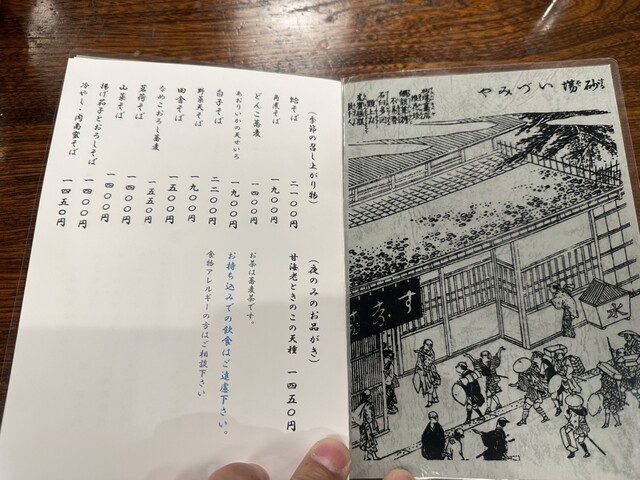 (季節の召し上がり物)
蛤そば 二一〇〇円
角煮そば 一九〇〇円
どんこ蕎麦 一四〇〇円
あおりいかの天せいろ 一九〇〇円
白子そば 二二〇〇円
野菜天そば 一九〇〇円
田舎そば 一五〇〇円
なめこおろし蕎麦 一五五〇円
茗荷そば 一四〇〇円
山菜そば 一四〇〇円
揚げ茄子とおろしそば 一四〇〇円
冷やし・肉南蛮そば 一四五〇円
(夜のみのお品がき)
甘海老ときのこの天種 一四五〇円
お茶は蕎麦茶です。
お持ち込みでの飲食はご遠慮下さい。
食物アレルギーの方はご相談下さい
砂場 いづみや
水